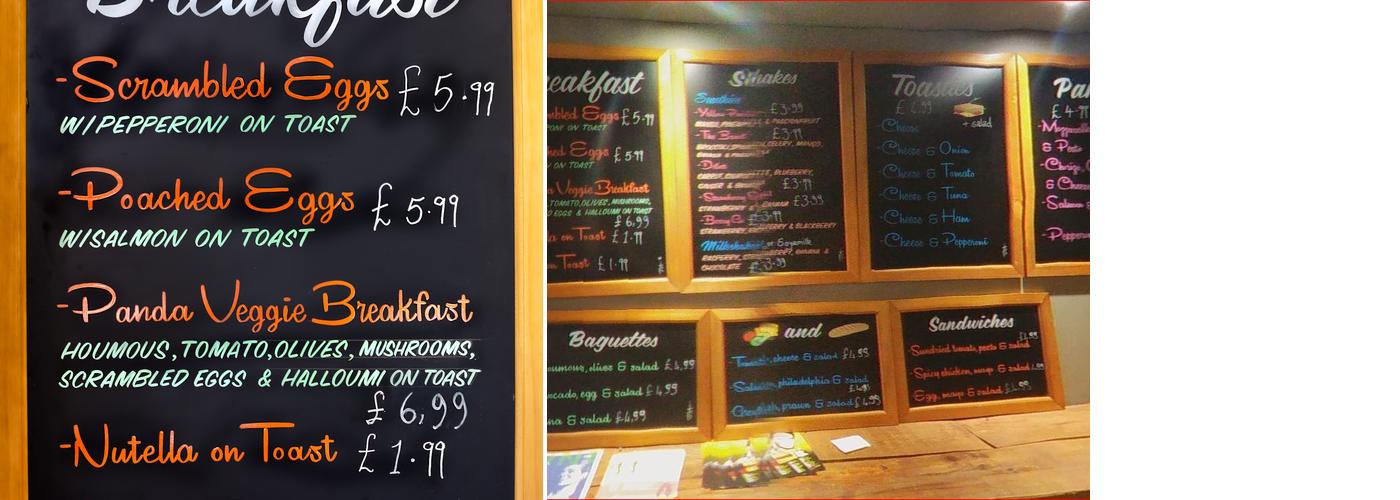 Breakfast
-Scrambled Eggs £5.99
W/PEPPERONI ON TOAST
-Poached Eggs £5.99
W/SALMON ON TOAST
-Panda Veggie Breakfast
HOUMOUS, TOMATO, OLIVES, MUSHROOMS,
SCRAMBLED EGGS & HALLOUMI ON TOAST
£6,99
-Nutella on Toast £1.99
eakfast
mbled Eggs £5.99
ON TOAST
hed Eggs £5.99
ON TOAST
a Veggie Breakfast
TOMATO, OLIVES, MUSHROOMS,
EGGS & HALLOUMI ON TOAST
£6,99
a on Toast £1.99
n Toast £1.99
Shakes
£3.99
£3.99
£3.99
£3.99
-Berry
Milkshakes or Soyamilk
CHOCOLATE
Toasties
£4.99
+ salad
-Cheese
-Cheese & Onion
-Cheese & Tomato
-Cheese & Tuna
-Cheese & Ham
-Cheese & Pepperoni
Pan
-Mozzarella
& Pesto
Baguettes
oumous, olives & salad £4,99
ocado, egg & salad £4,99
na & salad £4,99
and
-Tomato, cheese & salad £4,99
-Salmon, philadelphia & salad
£4,99
-Crayfish, prawn & salad £4,99
Sandwiches
£4,99
-Sundried tomato, pesto & salad
-Spicy chicken, mayo & salad 4,99
-Egg, mayo & salad £4,99